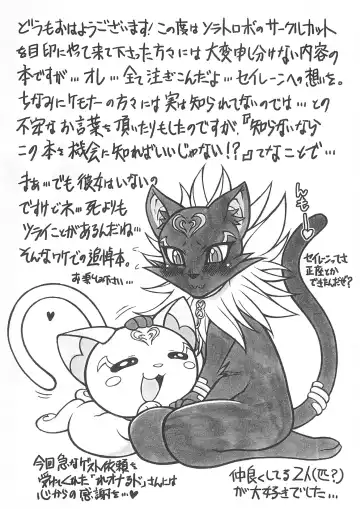 どうもおはようございます!この度はソラトロボのサークルカット
を目印にやって来て下さった方々には大変申し分けない内容の
本ですが…オレ…全て注ぎこんだよ…セイレーンへの想いを。
ちなみにケモナーの方々には実は知られてないのでは…との
不安なお言葉を頂いたりもしたのですが、『知らないなら
この本を機会に知ればいいじゃない!?』てなことで…
まぁ…でも彼女はいないの
ですけどネ…死よりも
ツライことがあるんだね…
そんなワケでの追悼本。
お楽しみ下さい…
んもー
セイレーンってさ
正座とか
できたんだぜ?
今回急なゲスト依頼を
受けてくれた
さんには
心からの感謝を…♥
仲良くしてる2人(匹?)
が大好きでした…